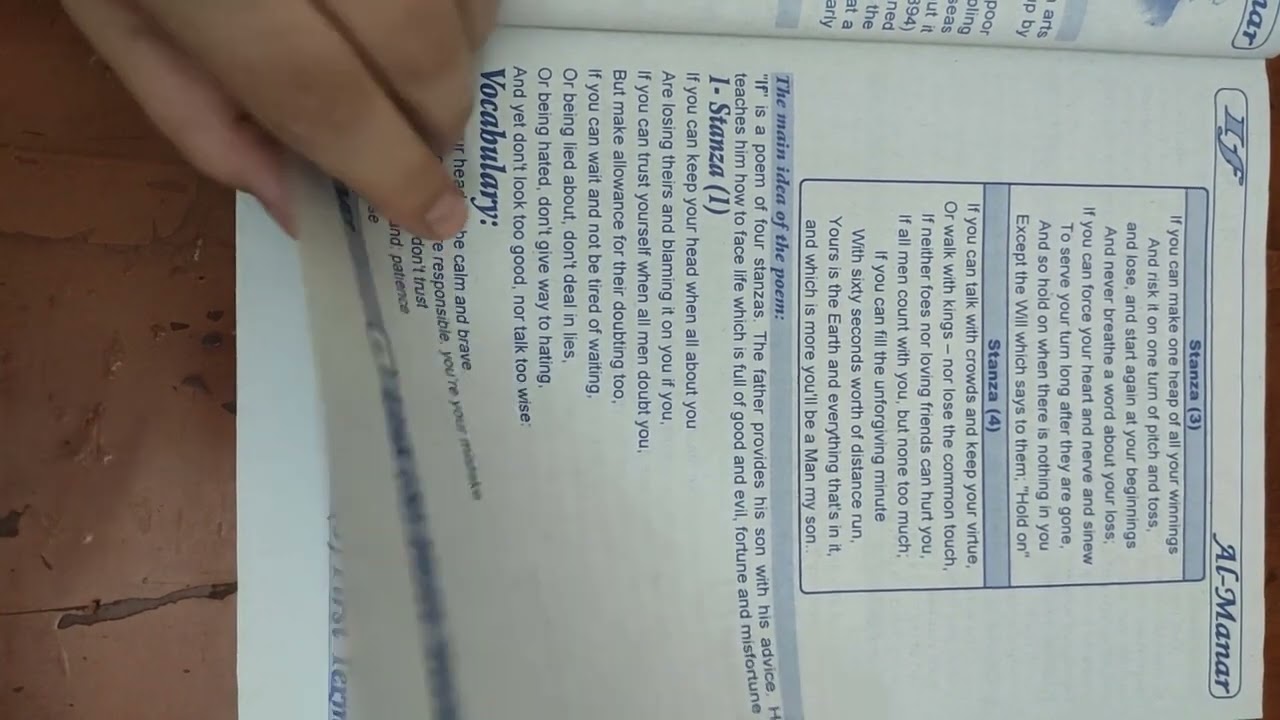 If
Al-Manar
Stanza (3)
If you can make one heap of all your winnings
And risk it on one turn of pitch and toss,
and lose, and start again at your beginnings
And never breathe a word about your loss;
If you can force your heart and nerve and sinew
To serve your turn long after they are gone,
And so hold on when there is nothing in you
Except the Will which says to them; "Hold on"
Stanza (4)
If you can talk with crowds and keep your virtue,
Or walk with kings – nor lose the common touch,
If neither foes nor loving friends can hurt you,
If all men count with you, but none too much;
If you can fill the unforgiving minute
With sixty seconds worth of distance run,
Yours is the Earth and everything that's in it,
and which is more you'll be a Man my son..
The main idea of the poem:
"If" is a poem of four stanzas. The father provides his son with his advice. H
teaches him how to face life which is full of good and evil, fortune and misfortune
1- Stanza (1)
If you can keep your head when all about you
Are losing theirs and blaming it on you if you,
If you can trust yourself when all men doubt you,
But make allowance for their doubting too,
If you can wait and not be tired of waiting,
Or being lied about, don't deal in lies,
Or being hated, don't give way to hating,
And yet don't look too good, nor talk too wise:
Vocabulary:
be calm and brave
responsible, you're your mistake
don't trust
patience
First Term
arts
up by
poor
seas
ut it
894)
ned
the
at a
arly
nar